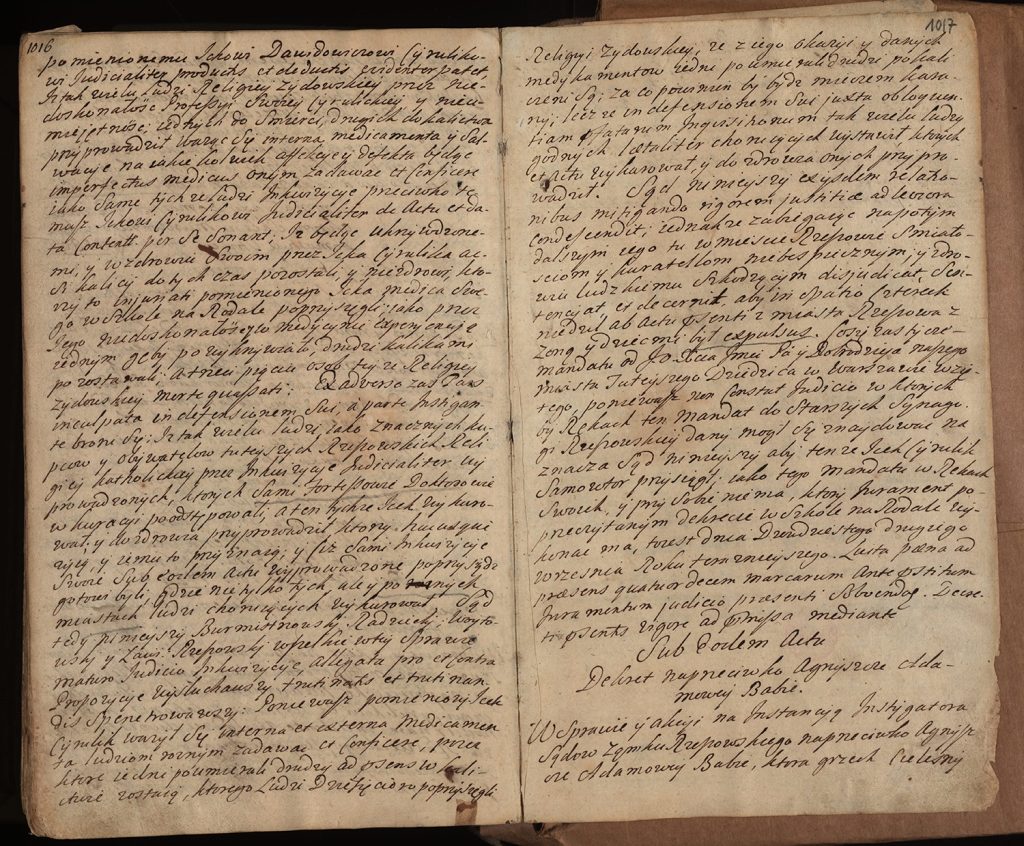 1016
pomienionemu Ickowi Dawidowiczowi Cyruliko-
wi Judicialiter productis et deductis evidenter patet,
Iż tak wielu Ludzi Religiey Zydowskiey przez nie-
doskonałość Professyi Swoiey Cyrulickiey y nieu-
miejętność, iednych do Smierci, drugich do kalictwa
przyprowadził ważąc Się interna medicamenta y Sal-
wacye na iakie kolwiek affekcye y defekta będąc
imperfectus medicus onym zadawac et conficere
iako Same tychże ludzi Inkwizycye przeciwko te-
muż Ickowi Cyrulikowi Judicialiter de Actu et da-
ta Content: per Se Sonant; Iż będąc ukrzywdzone-
mi, y w zdrowiu Swoim przez Icka Cyrulika ac-
Si kalicy do tych czas pozostali, y niezdrowi, kto-
rzy to injuriati pomienionego Icka medica Swe-
go w Szkole na Rodale poprzysięgli; iako przez
Jego niedoskonałość w medycynie experyencye
iednym gęby powykrzywiał, drudzi kalikami
pozostawali, a trzeci pięciu osob teyże Religiey
Zydowskiey morte quassati. Ex adverso zas Pars
inculpata in defensionem Sui, à parte Instigan-
te broni Się: Iż tak wielu ludzi iako znacznych ku-
pcow y Obywatelow tuteyszych Rzeszowskich Reli-
giey katholickiey przez Inkwizycye Judicialiter wy
prowadzonych, ktorych Sami Fortessowie Doktorowie
w kuracyi poodstępowali, a ten tychże Icek wykuro-
wał, y do zdrowia przyprowadził ktorzy hucusque
żyią, y iemu to przyznaią, y iuż Sami Inkwizycye
Swoie Sub eodem Actu wyprowadzone poprzysiądz
gotowi byli, gdzie nie tylko tych, ale y po roznych
miastach ludzi choruiących wykurował Sąd
tedy ninieyszy Burmistrzowski, Radziecki, Woyto-
wski y Ławn: Rzeszowski wszelkie w tey Sprawie
maturo Judicio Inkwizycye, Allegata pro et Contra
Propozycye wysłuchawszy trutinatis et trutinan-
dis Spenetrowawszy: Poniewasz pomieniony Icek
Cyrulik ważył Się interna et externa Medicamen
ta ludziom roznym zadawac et Conficere, przez
ktore iedni poumierali drudzy ad praesens w kali-
ctwie zostaią, ktorego Ludzi Dziesięcioro poprzysięgli
1017
Religiyi Zydowskiey, ze z iego okazyi y danych
medykamentow iedni poumierali drudzi pokali-
czeni Są; za co powinien by bydz mieczem kara-
ny; lecz ze in defensionem Sui juxta obloquen-
tiam praefatarum Inquisitionum tak wielu ludzi
godnych, laetaliter choruiących wystawił ktorych
et Actu wykurował, y do zdrowia onych przypro-
wadził. Sąd ninieyszy exiisdem relatio-
nibus mitigando rigorem justitiae ad leviora
Condescendit; iednakze zabiegaiąc napotym
dalszym iego tu w mieście Rzeszowie Smiało-
sciom y kuratellom niebespiecznym, y zdro-
wiu ludzkiemu Szkodzącym disjudicat, Sen-
tenciat, et decernit, aby in Spatio Czterech
niedziel ab Actu praesenti z miasta Rzeszowa z
Zoną y dziecmi był expulsus. Coż zas tycze
mandatu od JO Xcia Jmci Pa y Dobrodzieja naszego
miasta Tuteyszego Dziedzica w Warszawie wzię-
tego, poniewasz non Constat Judicio w ktorych
by Rękach ten Mandat do Starszych Synago-
gi Rzeszowskiey dany mogł Się znaydować na
znacza Sąd ninieyszy aby tenze Icek Cyrulik
Samowtor przysiągł; iako tego mandatu w Rękach
Swoich, y przy Sobie niema, ktory Jurament po-
przeczytanym dekrecie w Szkole na Rodale wy-
konac ma, to iest dnia Dwudziestego drugiego
wrzesnia Roku teraznieyszego. Luita paena ad
praesens quatuordecem marcarum Ante praestitum
Juramentum judicio praesenti Solvenda. Decre-
ti praesentis vigore ad praemissa mediante
Sub Eodem Actu
Dekret naprzeciwko Agnyszce Ada-
mowey Babie.
W Sprawie y Akcyi na Instancyą Instygatora
Sądow Zamku Rzeszowskiego naprzeciwko Agnysz
ce Adamowey Babie, ktora grzech Cielesny